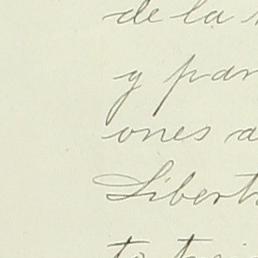 de la
y par
ones a
Libert
to